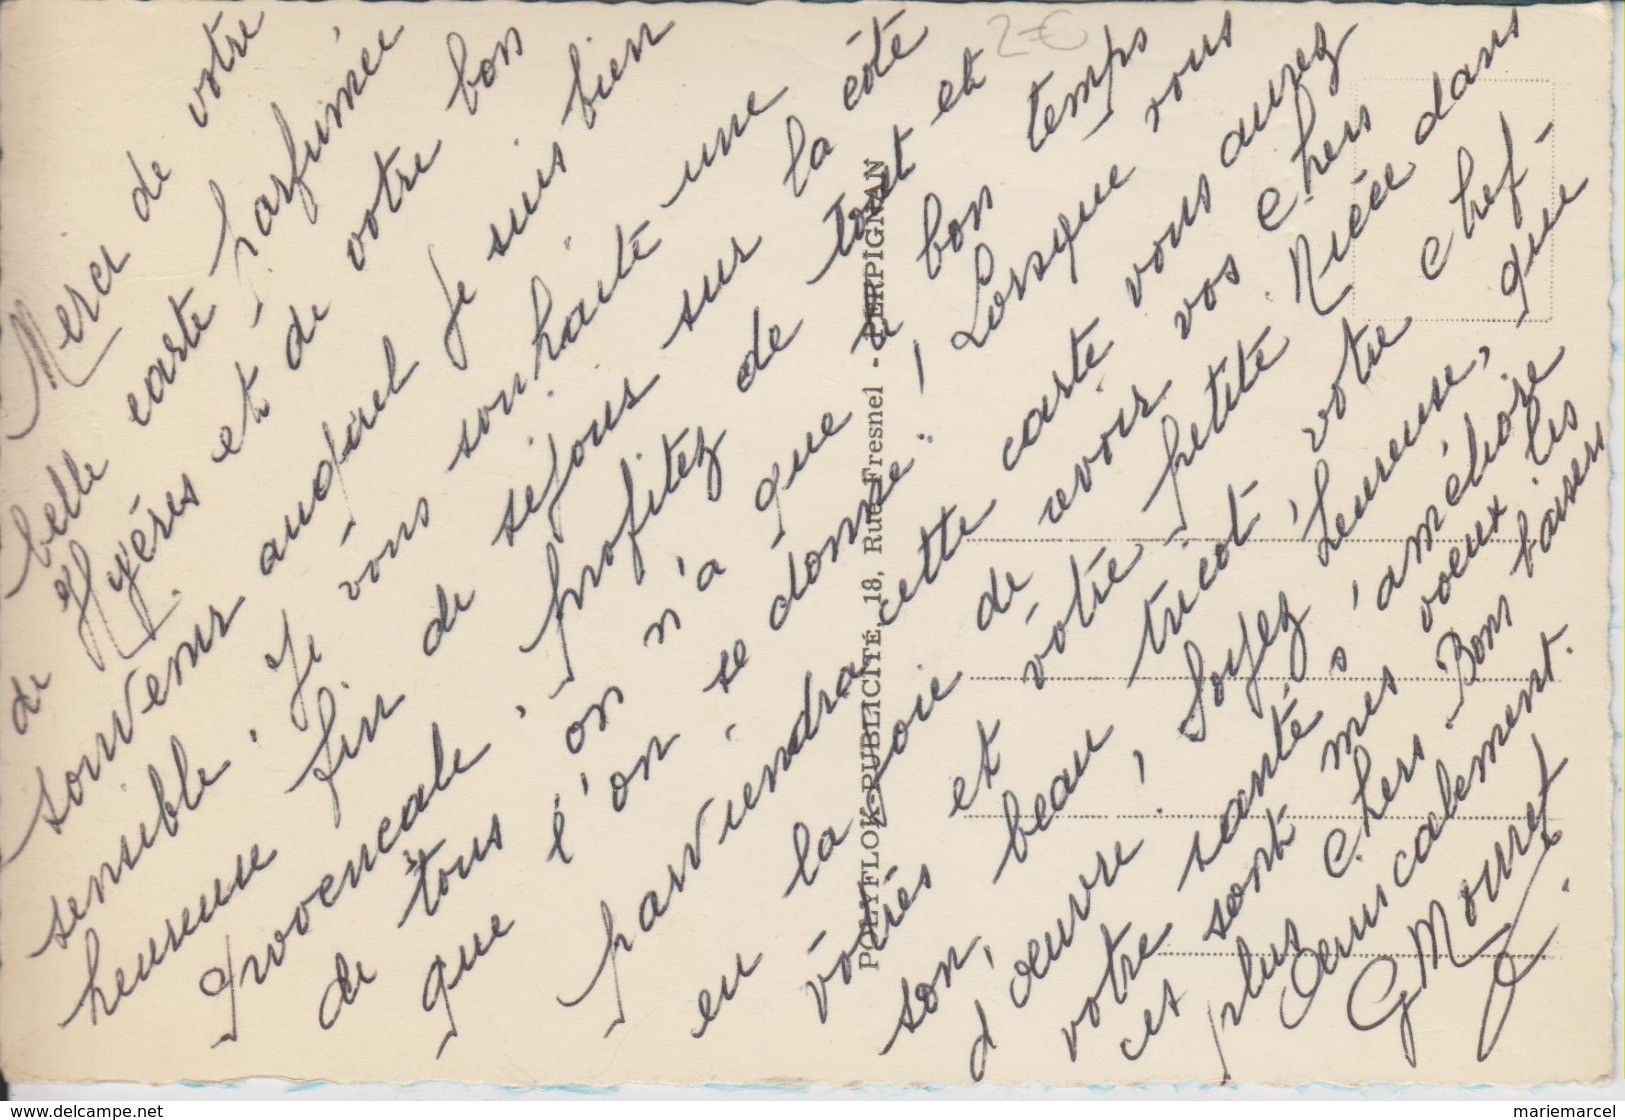 Merci de votre
belle carte parfumée
de Hyères et de votre bon
souvenir auquel je suis bien
sensible. Je vous souhaite une
heureuse fin de séjour sur la côte
Provencale, profitez de tout et
de tous l'on n'a que le bon temps
que l'on se donne! Lorsque vous
parviendra cette carte vous aurez
eu la joie de revoir vos chers
et votre petite Nièce dans
son beau tricot, votre chef-
d'œuvre. Soyez heureuse, que
votre santé s'améliore
ces sont mes voeux les
plus chers. Bons baisers
Amicalement.
G Mouret
POLYFLOK-PUBLICITÉ, 18, Rue Fresnel - PERPIGNAN
2 €
www.delcampe.net
mariemarcel